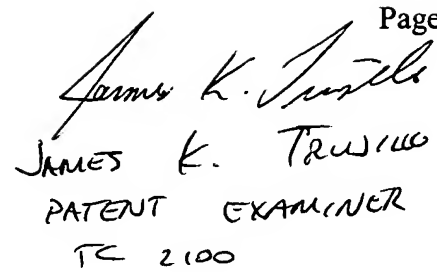 Page
James K. Trujillo
JAMES K. TRUJILLO
PATENT EXAMINER
TC 2100